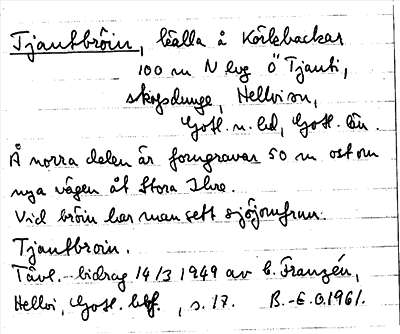 Tjautbröin, källa å Körlebackar
100 m N lvg Ö Tjauti,
skogsdunge, Hellvi sn,
Gotl. n. hd, Gotl. län.
Å norra delen är forngravar 50 m ost om
nya vägen åt Stora Ihre.
Vid bröin har man sett sjöjomfrun.
Tjautbroin.
Tävl. bidrag 14/3 1949 av C. Franzén,
Hellvi, Gotl. , s. 17. B.-E. O. 1961.